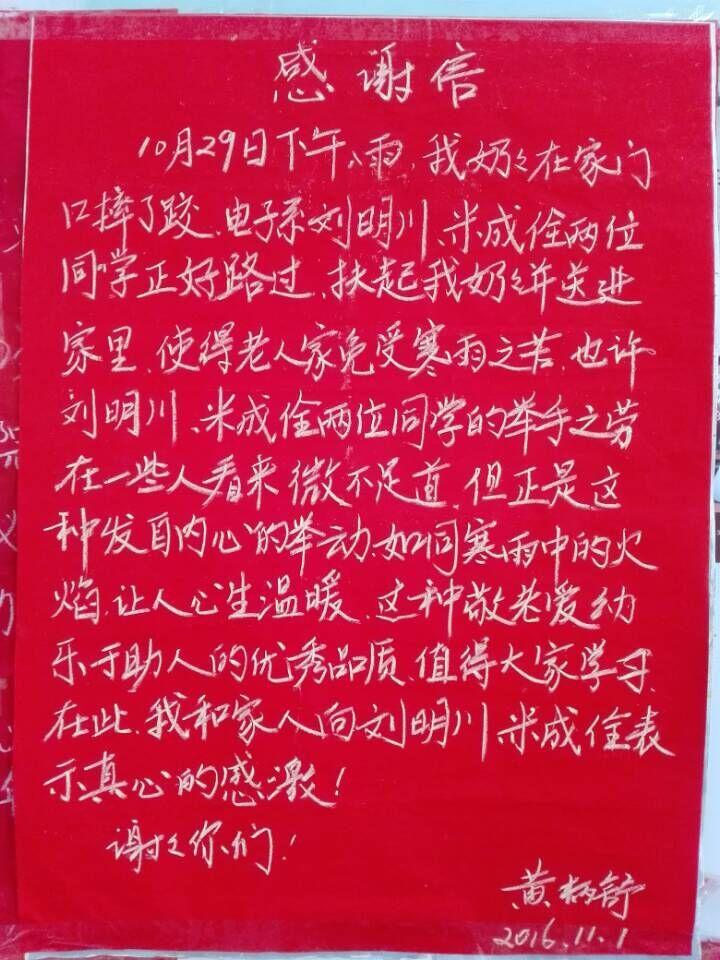 感谢信
10月29日下午,雨,我奶々在家门
口摔了跤.电子系刘明川、米成佺两位
同学正好路过,扶起我奶々并送进
家里,使得老人家免受寒雨之苦,也许
刘明川、米成佺两位同学的举手之劳
在一些人看来微不足道,但正是这
种发自内心的举动,如同寒雨中的火
焰,让人心生温暖,这种敬老爱幼
乐于助人的优秀品质,值得大家学习,
在此,我和家人向刘明川、米成佺表
示真心的感激!
谢々你们!
黄炳舒
2016.11.1